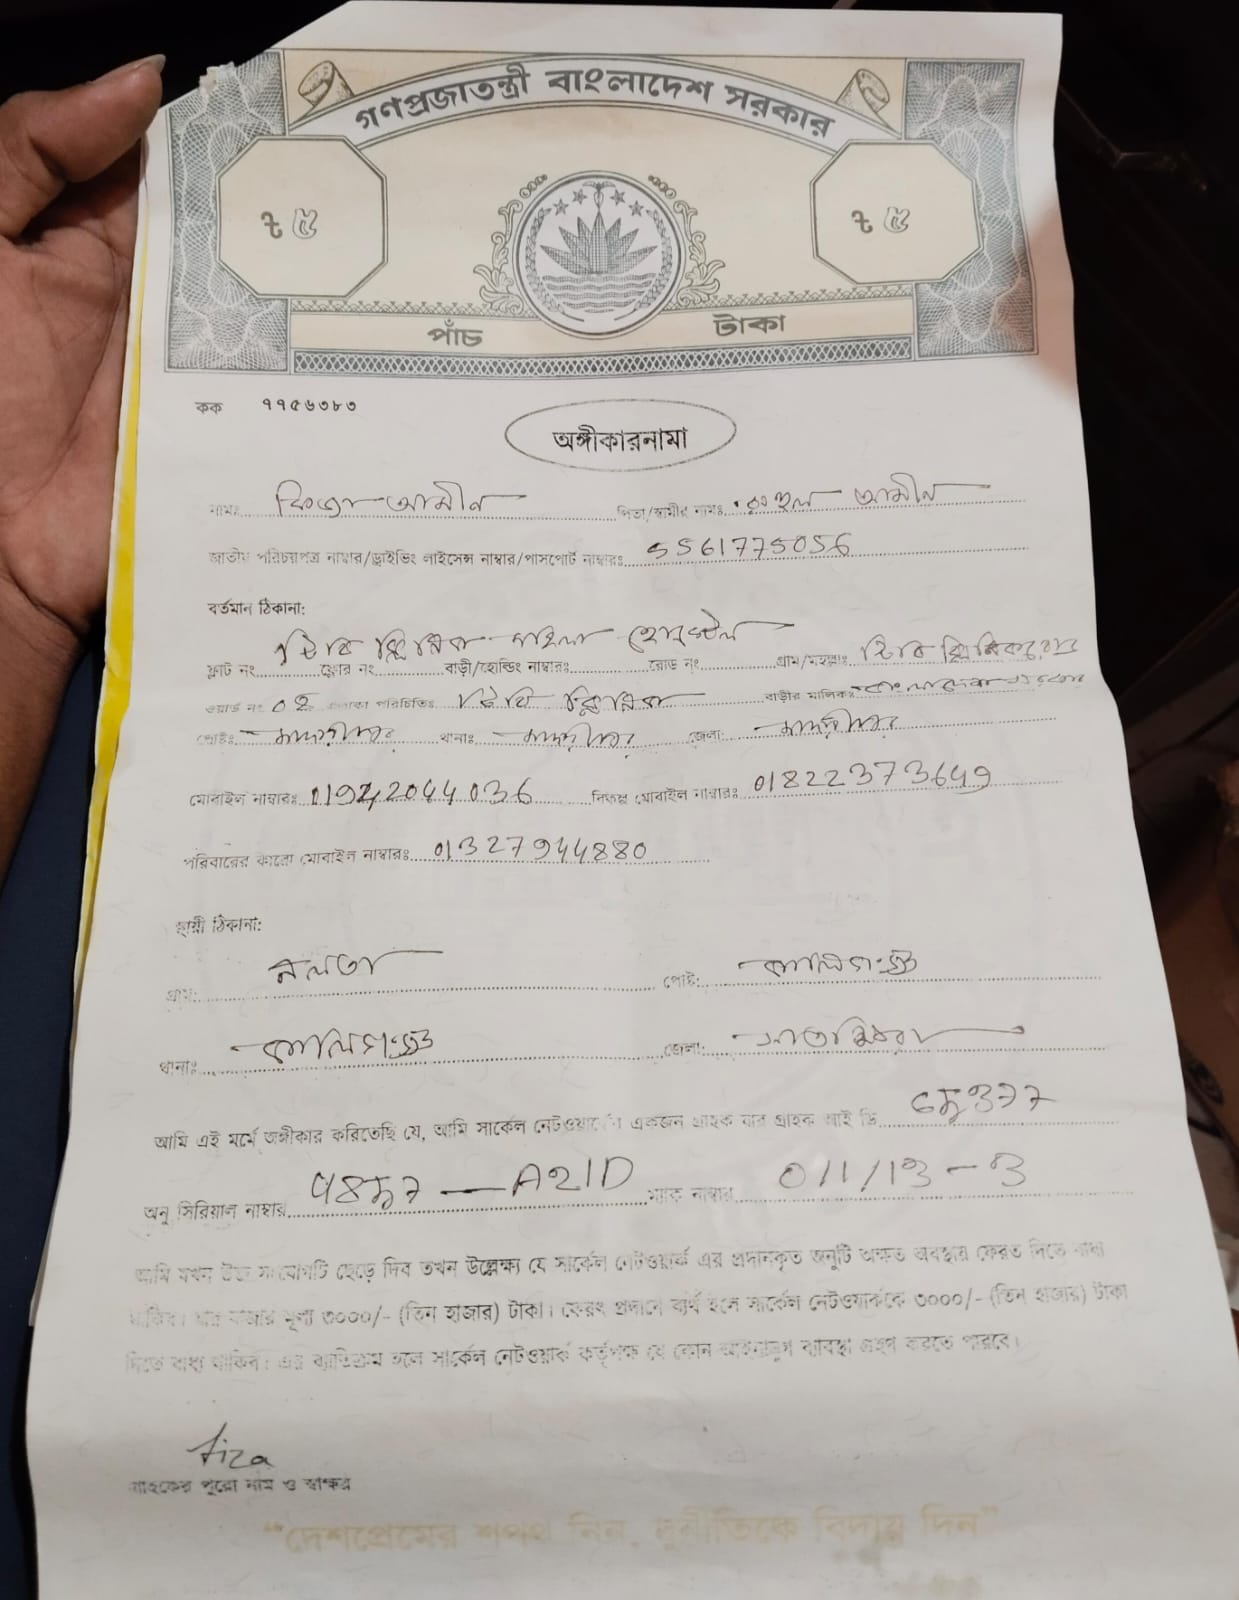 গণপ্রজাতন্ত্রী বাংলাদেশ সরকার
৳ ৫ ৳ ৫
পাঁচ টাকা
কক ৭৭৫৬৩৮৩
অঙ্গীকারনামা
নামঃ ফিজা আমীন পিতা/স্বামীর নামঃ রুহুল আমীন
জাতীয় পরিচয়পত্র নাম্বার/ড্রাইভিং লাইসেন্স নাম্বার/পাসপোর্ট নাম্বারঃ 5561775056
বর্তমান ঠিকানা:
টিবি ক্লিনিক মহিলা হোস্টেল
ফ্লাট নং ফ্লোর নং বাড়ী/হোল্ডিং নাম্বারঃ রোড নং গ্রাম/মহল্লাঃ টিবি ক্লিনিক রোড
ওয়ার্ড নং ০২ পরিচিতিঃ টিবি ক্লিনিক বাড়ীর মালিকঃ বাংলাদেশ সরকার
পোষ্টঃ থানাঃ জেলা:
মোবাইল নাম্বারঃ 01942044036 বিকল্প মোবাইল নাম্বারঃ 01822373649
পরিবারের কারো মোবাইল নাম্বারঃ 01327944880
স্থায়ী ঠিকানা:
গ্রাম: নলতা পোষ্ট: কালিগঞ্জ
থানাঃ কালিগঞ্জ জেলা: সাতক্ষিরা
আমি এই মর্মে অঙ্গীকার করিতেছি যে, আমি সার্কেল নেটওয়ার্কের একজন গ্রাহক যার গ্রাহক আই ডি
অনু সিরিয়াল নাম্বার ম্যাক নাম্বার 011/13-3
আমি যখন উক্ত সংযোগটি ছেড়ে দিব তখন উল্লেক্ষ্য যে সার্কেল নেটওয়ার্ক এর প্রদানকৃত অনুটি অক্ষত অবস্থায় ফেরত দিতে বাধ্য
থাকিব। যার বাজার মূল্য ৩০০০/- (তিন হাজার) টাকা। ফেরৎ প্রদানে ব্যর্থ হলে সার্কেল নেটওয়ার্ককে ৩০০০/- (তিন হাজার) টাকা
দিতে বাধ্য থাকিব। এর ব্যতিক্রম হলে সার্কেল নেটওয়ার্ক কর্তৃপক্ষ যে কোন আইনানুগ ব্যাবস্থা গ্রহণ করতে পারবে।
fiza
গ্রাহকের পুরো নাম ও স্বাক্ষর
"দেশপ্রেমের শপথ নিন, দুর্নীতিকে বিদায় দিন"